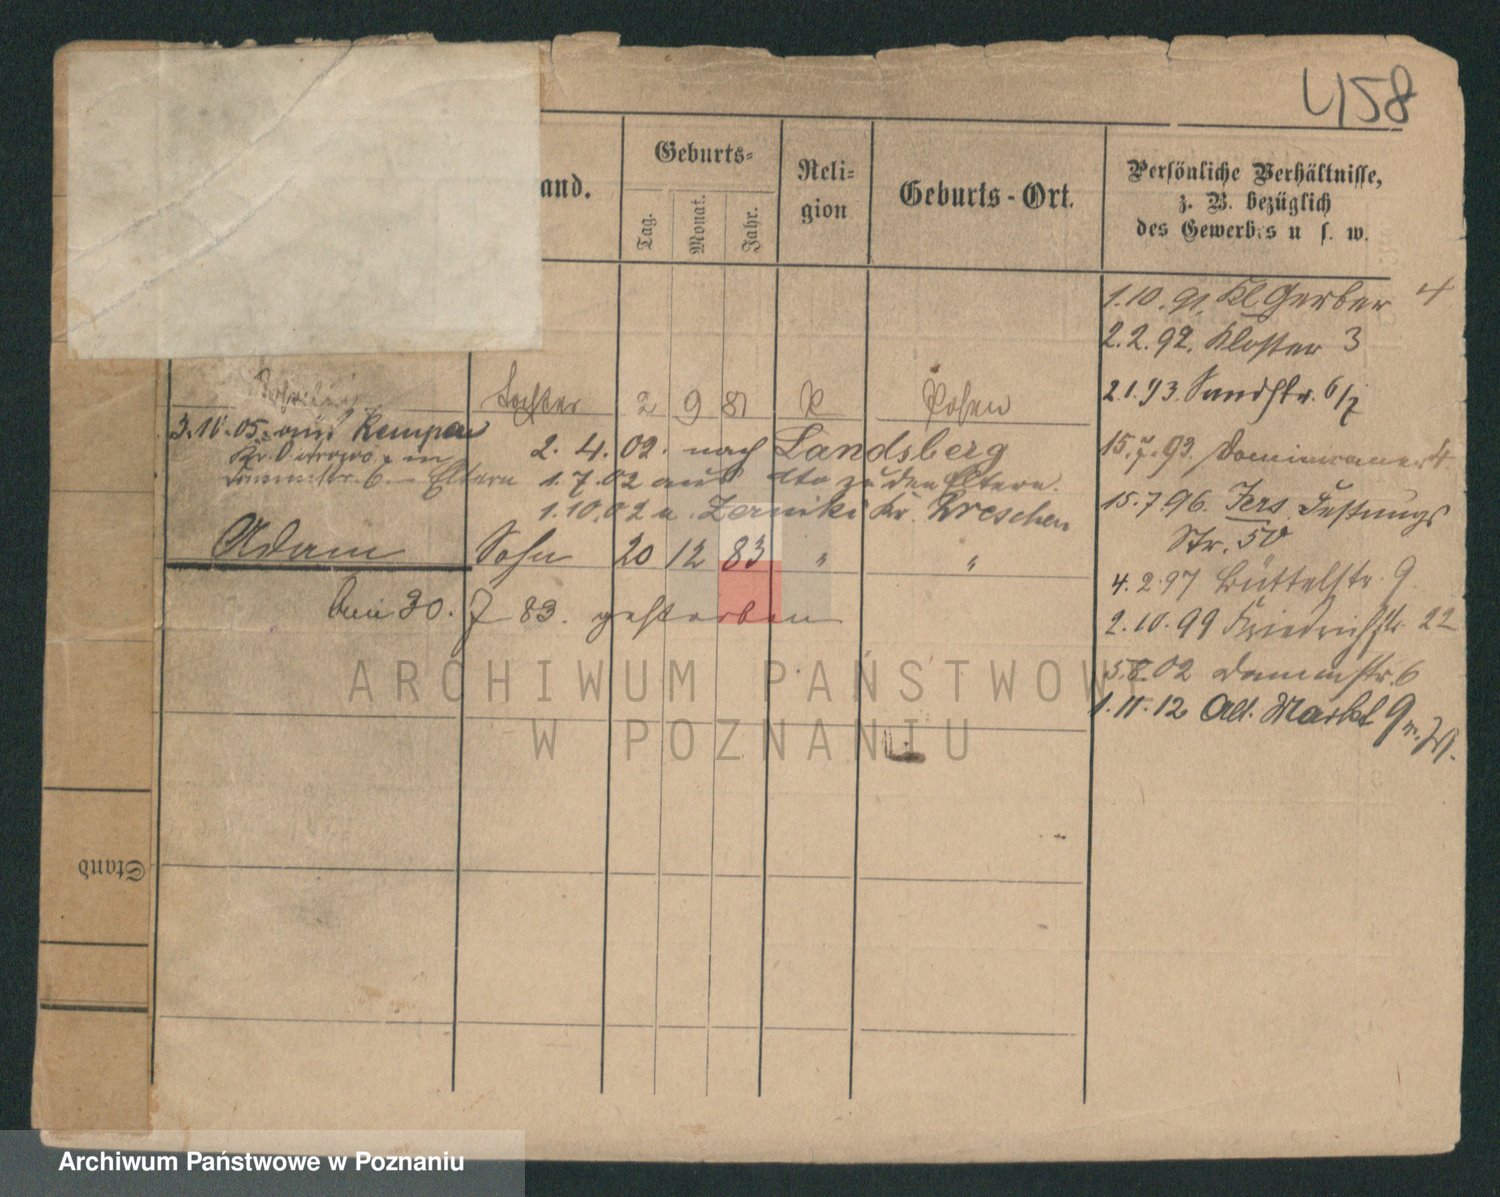 458
and.
Geburts-
Tag.
Monat.
Jahr.
Reli-
gion
Geburts-Ort.
Persönliche Verhältnisse,
z. B. bezüglich
des Gewerbes u s. w.
1.10.91. Kl Gerber 4
2.2.92. Kloster 3
2.1.93. Sandstr. 6/7
15.7.93. Dominicaner 4
15.7.96. Jers Festungs
Str. 50
4.2.97 Büttelstr. 9
2.10.99 Friedrichstr 22
5.8.02 Dammstr. 6
1.11.12 Alt. Markt 9
Tochter 2 9 81 K Posen
3.10.05. aus Kempen
2.4.02. nach Landsberg
in
Dammstr. 6. Eltern 1.7.02 aus dto zu den Eltern.
1.10.02 n. Zerniki Kr. Wreschen
Adam Sohn 20 12 83 " "
30. 7 83. gestorben
Stand
ARCHIWUM PAŃSTWOWE
W POZNANIU
Archiwum Państwowe w Poznaniu